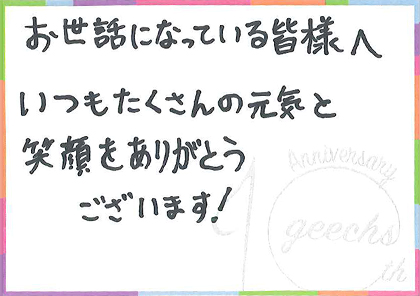 お世話になっている皆様へ
いつもたくさんの元気と
笑顔をありがとう
ございます!
10
Anniversary
geechs
th